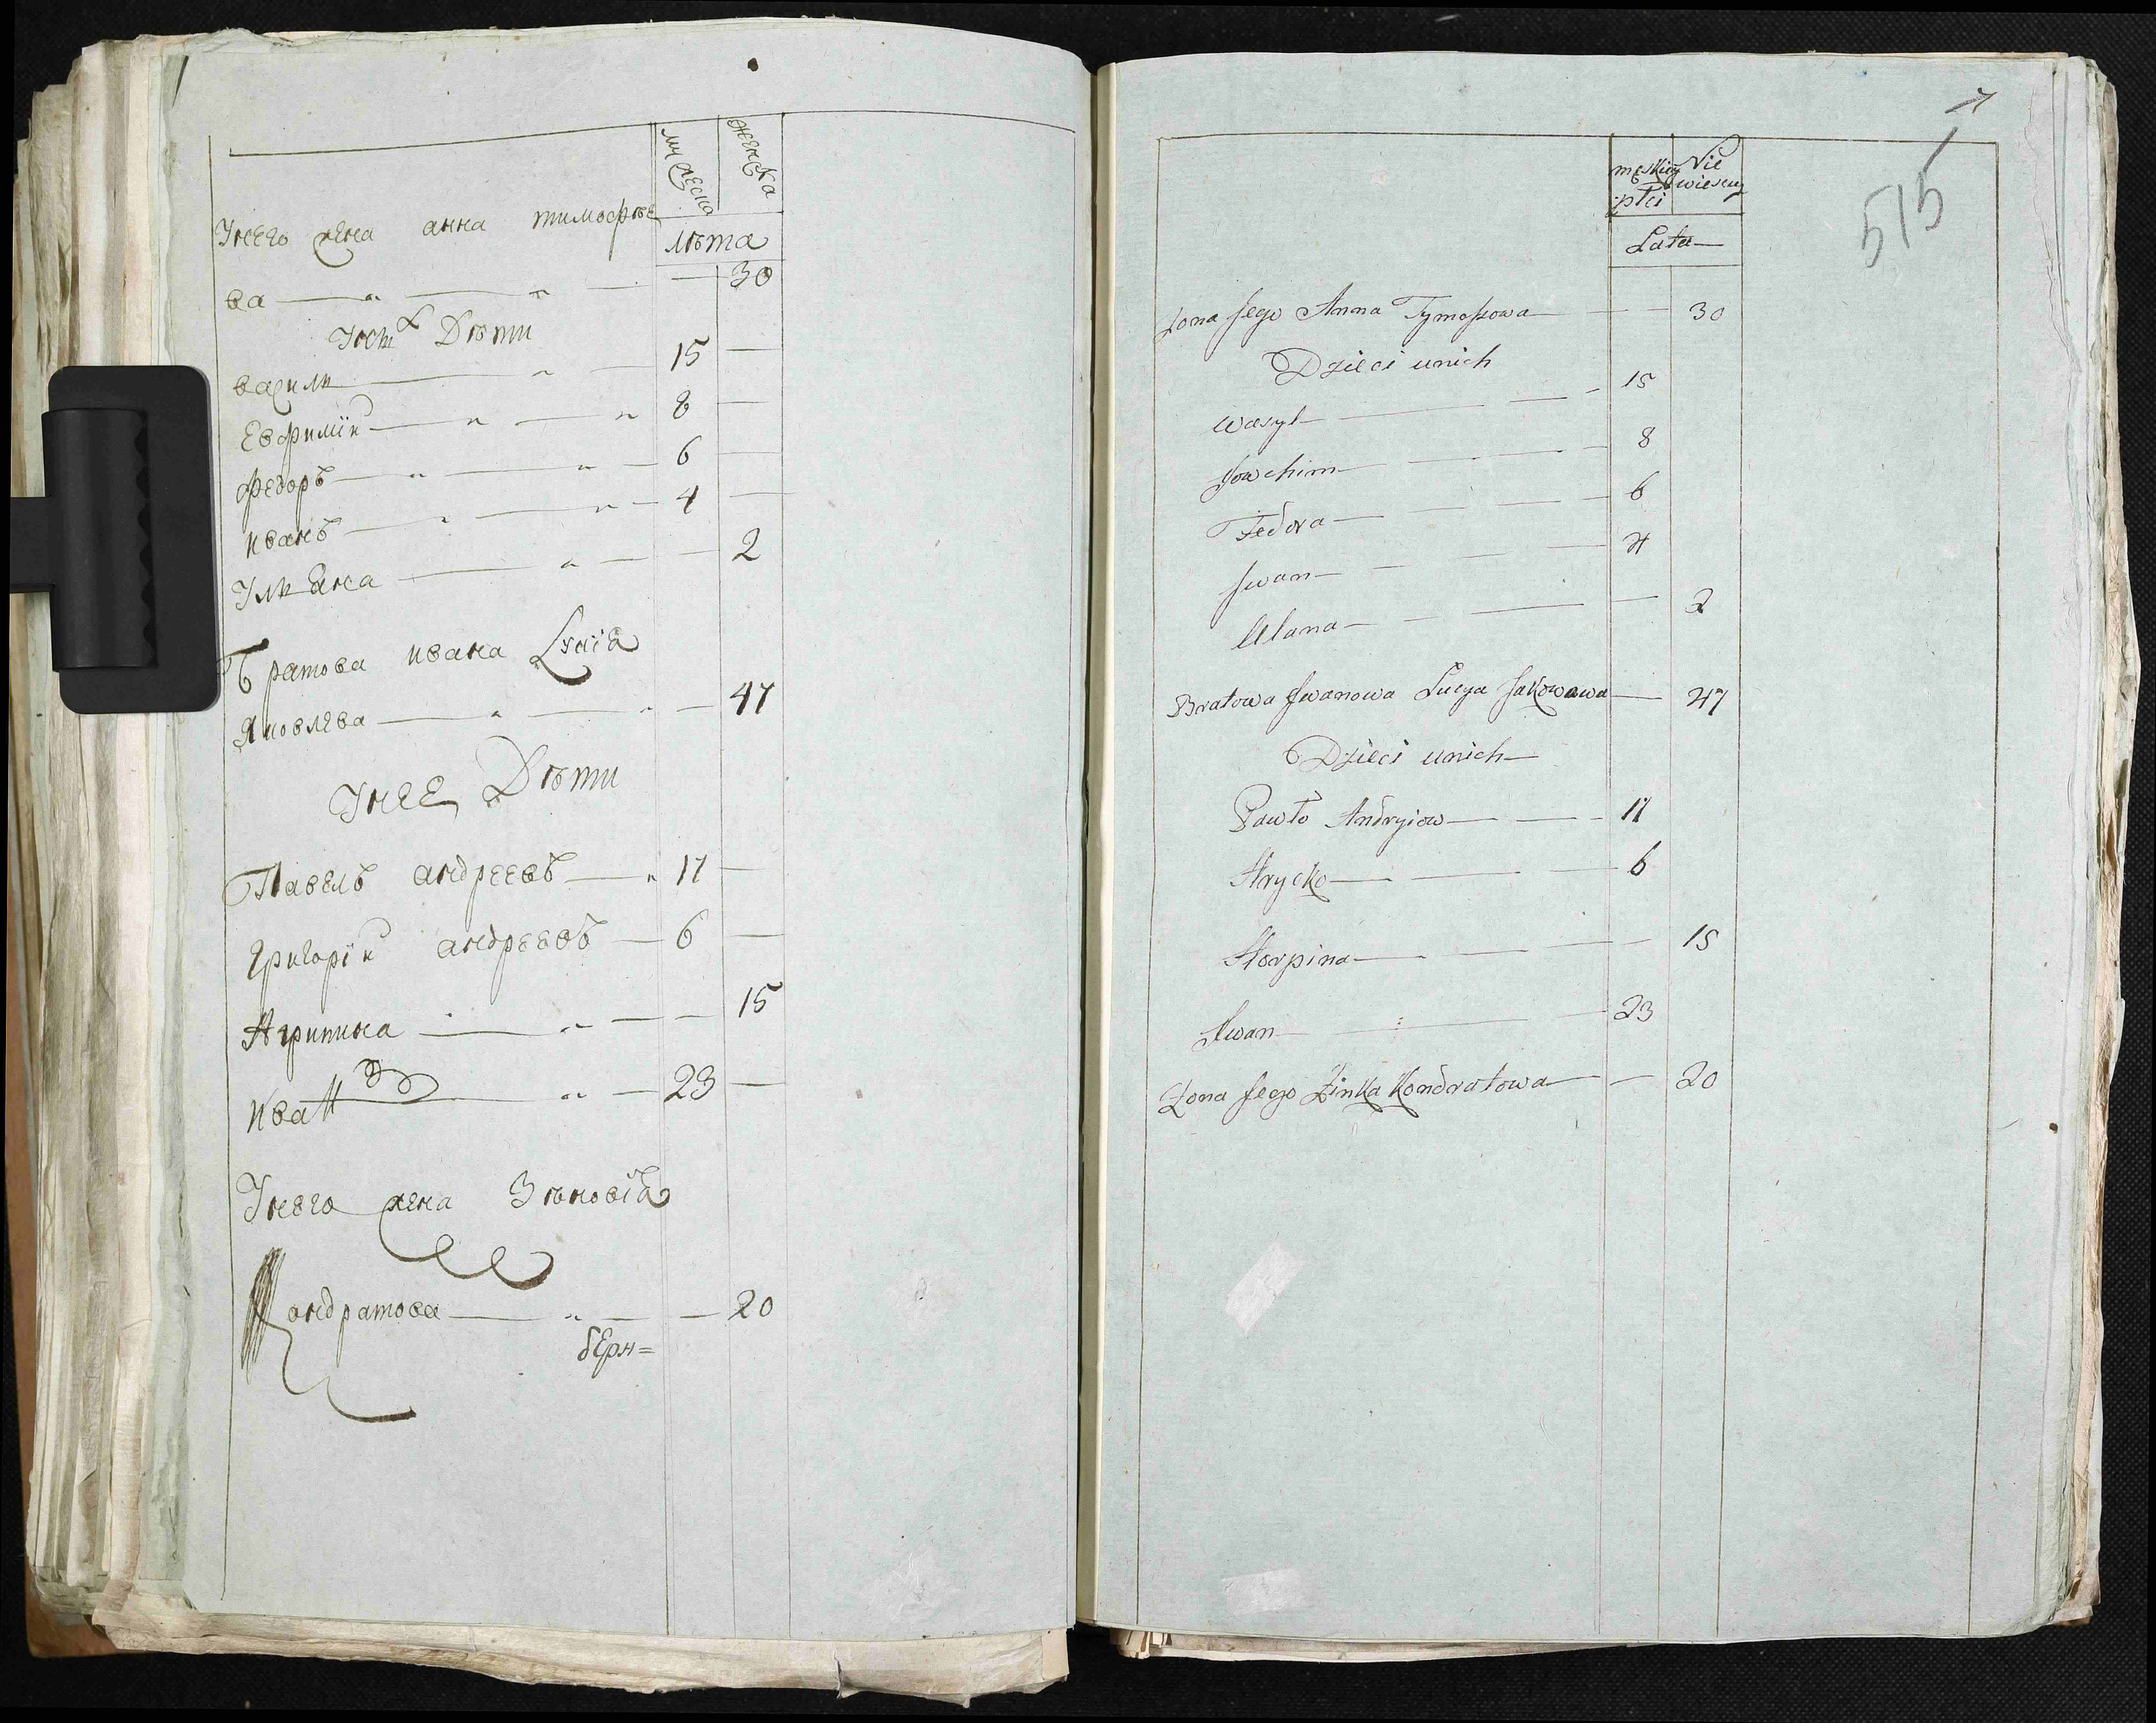 мужеска
женска
лѣта
Унего жена анна тимофѣе
ва — " — " — — 30
Унихъ Дѣти
василь — " — 15 —
Евфимїи — " — " 8 —
федоръ — " — " — 6 —
иванъ — " — " — 4 —
Ульяна — " — — 2
Братова ивана Лукїа
Яковлева — " — " — 47
Унее Дѣти
Павелъ андреевъ — " 17 —
григорїи андреевъ — 6 —
Агрипина — " — — 15
иванъ — " — 23 —
Унего жена Зѣновїа
Кондратова — " — — 20
7
515
męskiey płci
Niewiesciey
Lata
Żona Jego Anna Tymoszowa — — 30
Dzieci unich
Wasyl — — — 15
Joachim — — — 8
Fedora — — — 6
Jwan — — — 4
Ulana — — — — 2
Bratowa Jwanowa Lucya Jakowowa — 47
Dzieci unich —
Pawło Andryiow — — — 17
Hrycko — — — 6
Horpina — — — — 15
Jwan — : — — 23
Żona Jego Zinka Kondratowa — — 20